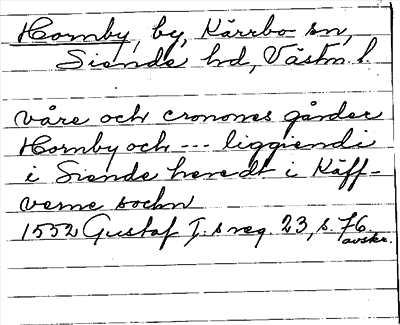 Hornby, by, Kärrbo sn,
Siende hd, Västm. l.
våre och cronones gårder
Hornby och --- liggiendi
i Siende heredt i Käff-
verne sochn
1552 Gustaf I:s reg. 23, s. 76.
avskr.